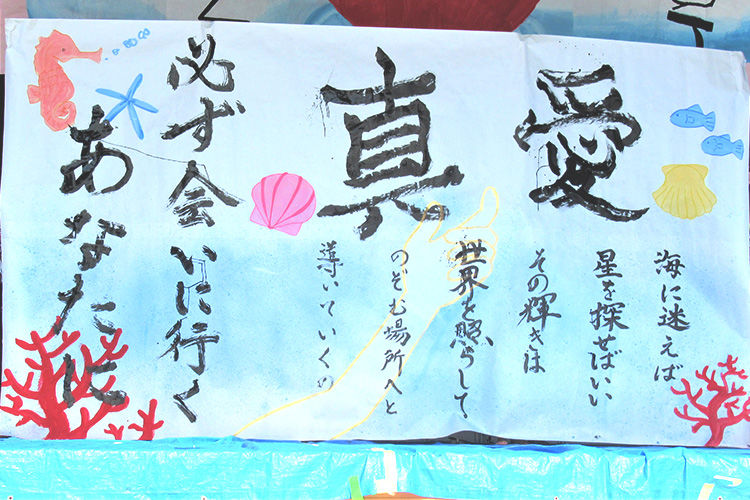 愛
真
海に迷えば
星を探せばいい
その輝きは
世界を照らして
のぞむ場所へと
導いていくの
必ず会いに行く
あなたに